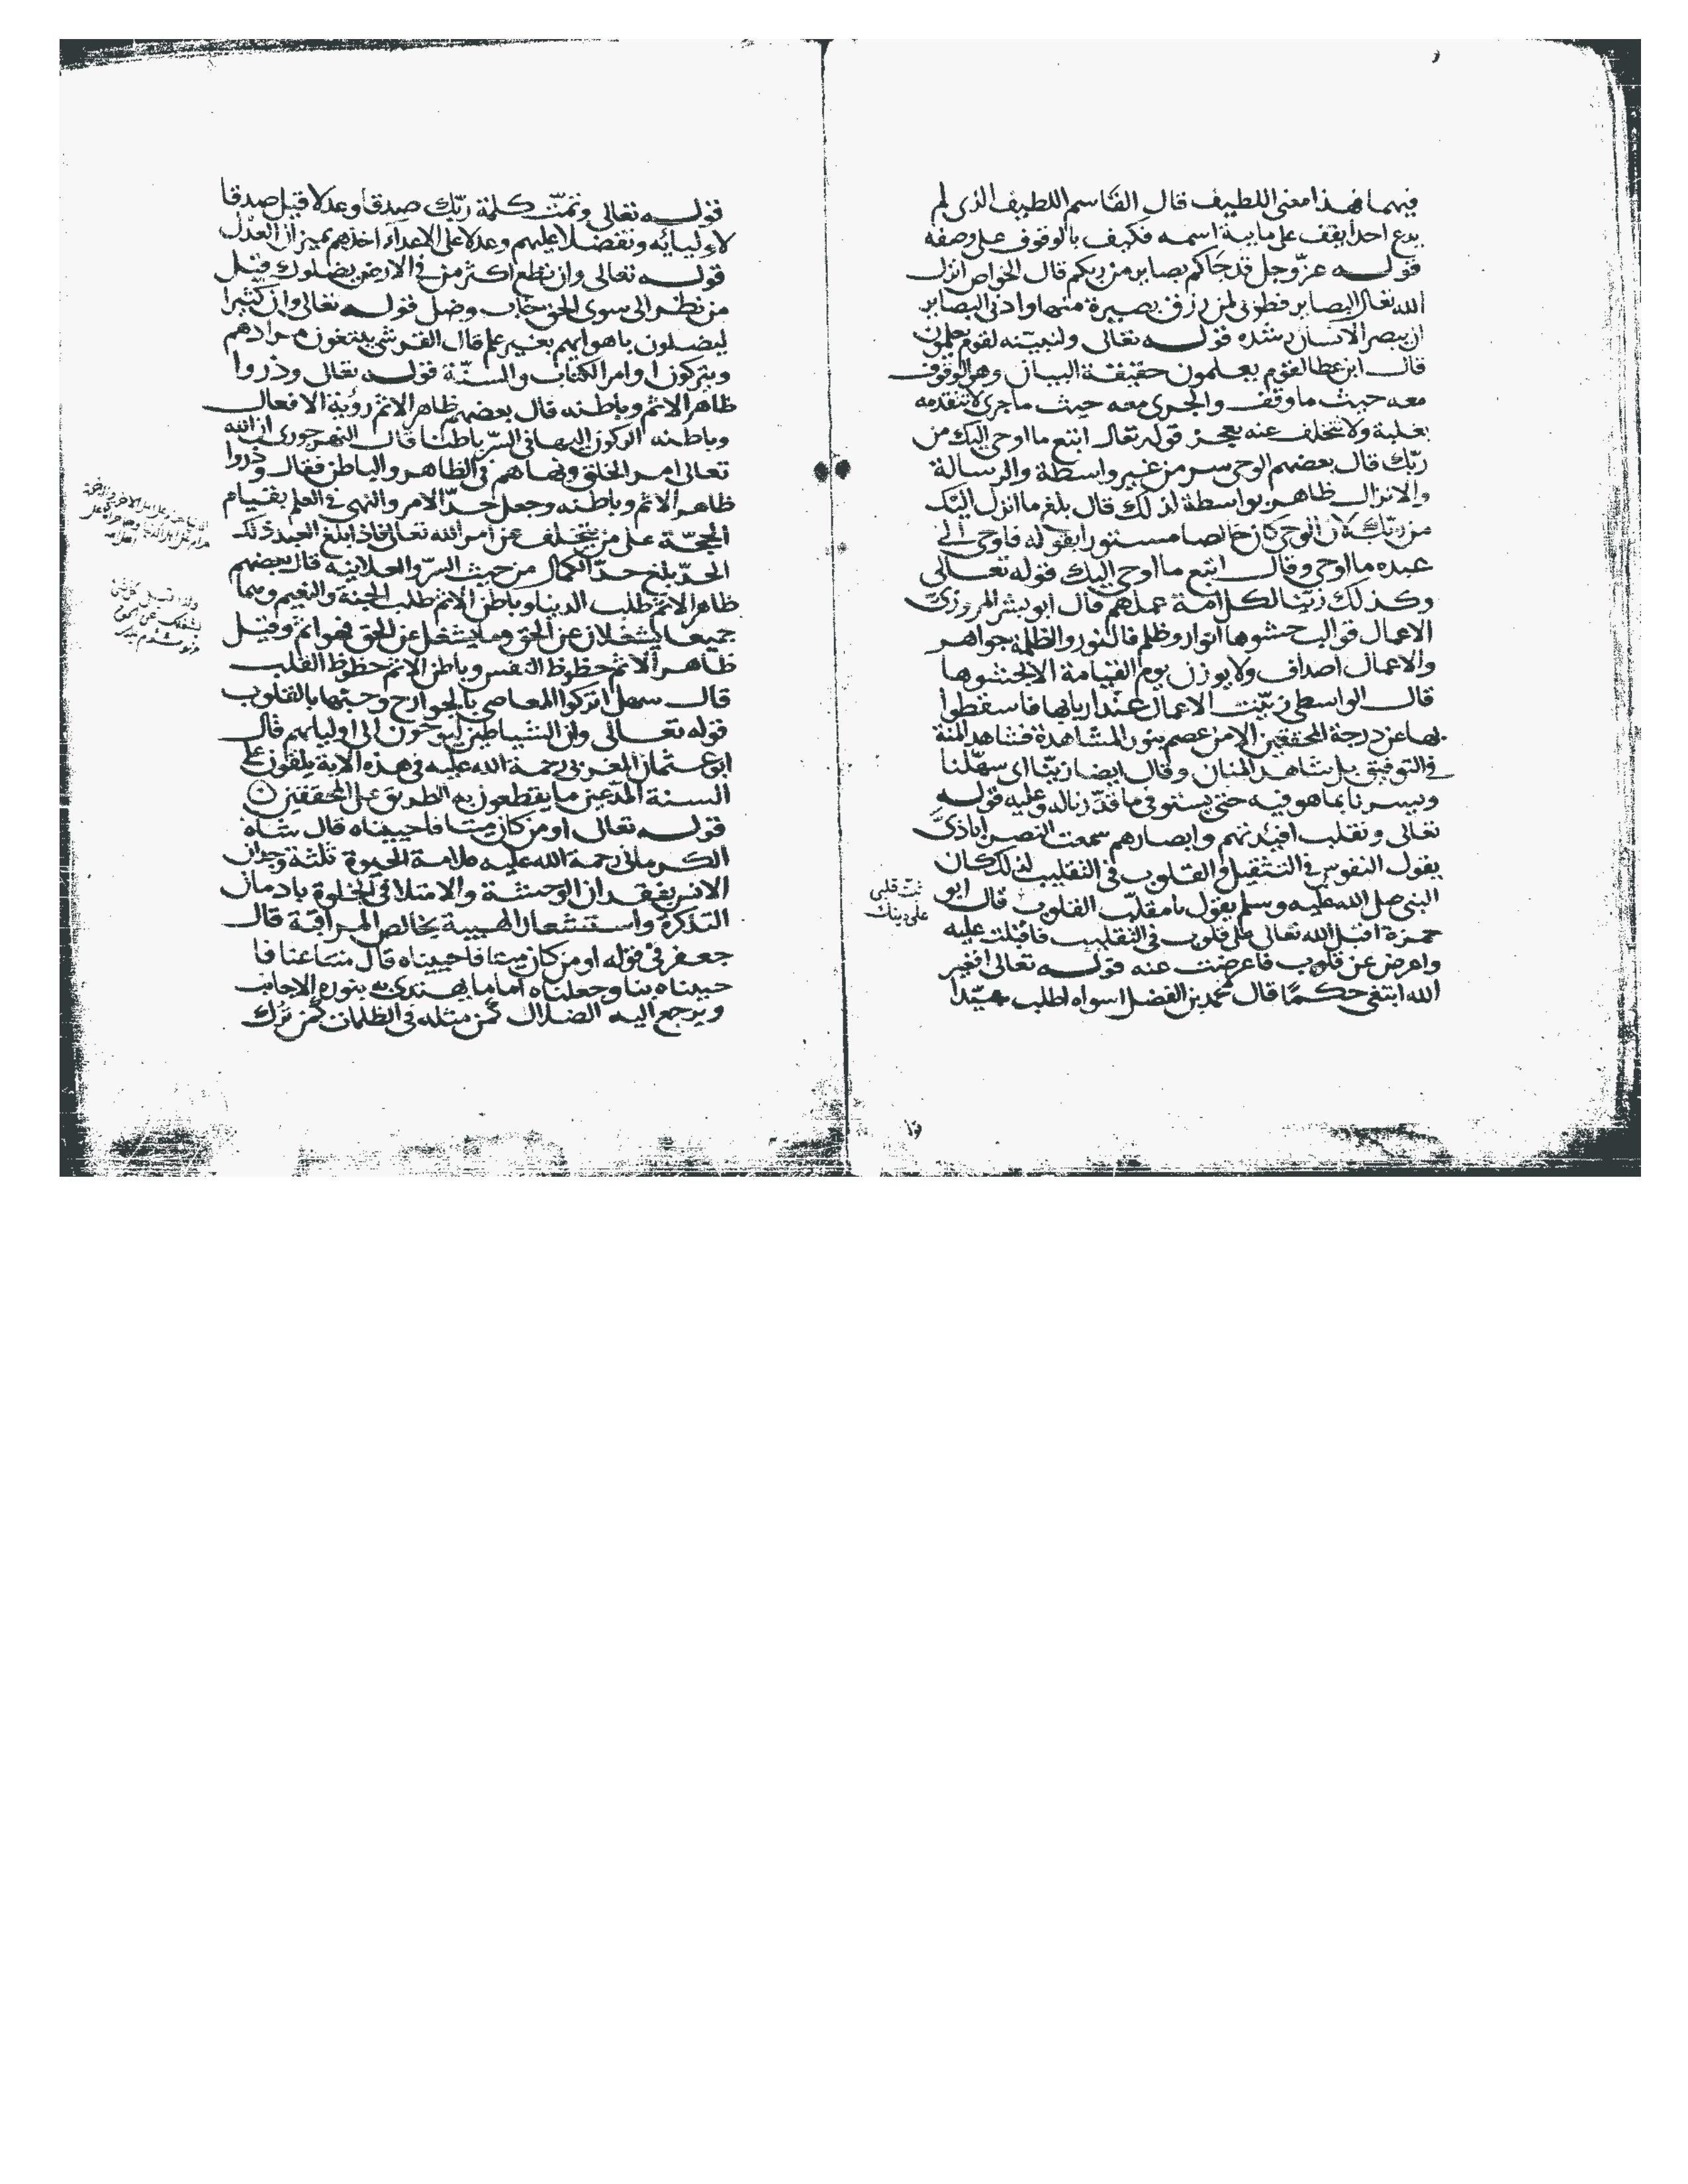 فيهما فهذا معنى اللطيف قال القاسم اللطيف الذى لم
يدع احدا يقف على مايية اسمه فكيف بالوقوف على وصفه
قوله عزّ وجل قد جاكم بصاير من ربكم قال الخواص انزل
الله تعالى البصاير فطوبى لمن رزق بصيرة منها وادنى البصاير
ان يبصر الانسان رشده قوله تعالى ولنبيّنه لقوم يعلمون
قال ابن عطا لقوم يعلمون حقيقة البيان وهو الوقوف
معه حيث ما وقف والجرى معه حيث ما جرى لا يتقدمه
بغلبة ولا يتخلف عنه بعجز قوله تعالى اتبع ما اوحى اليك من
ربّك قال بعضهم الوحى سر من غير واسطة والرسالة
والانزال ظاهر بواسطة لذلك قال بلغ ما انزل اليك
من ربّك لان الوحى كان خالصا مستورا بقوله فاوحى الى
عبده ما اوحى وقال اتبع ما اوحى اليك قوله تعالى
وكذلك زيّنا لكل امة عملهم قال ابو بشر المروزىّ
الاعمال قوالب حشوها انوار وظلم فالنور والظلمة جواهر
والاعمال اصداف ولا يوزن يوم القيامة الا بحشوها
قال الواسطى زيّنت الاعمال عند اربابها فاسقطوا
بها عن درجة المحققين الا من عصم بنور المشاهدة فشاهد المنّة
فى التوفيق بل شاهد المنان وقال ايضا زيّنا اى سهّلنا
ويسرنا بما هو فيه حتى يستوفى ما قدّرنا له وعليه قوله
تعالى ونقلب افيدتهم وابصارهم سمعت النصراباذىّ
يقول النفوس فى التثقيل والقلوب فى التقليب لذلك كان
النبى صلى الله عليه وسلم يقول يا مقلّب القلوب قال ابو
ثبّت قلبى
على دينك
حمزة اقبل الله تعالى على قلوب فى التقليب فاقبلت عليه
واعرض عن قلوب فاعرضت عنه قوله تعالى افغير
الله ابتغى حكمًا قال محمد بن الفضل اسواه اطلب سيّدا
قوله تعالى وتمّت كلمة ربّك صدقا وعدلا قيل صدقا
لاوليائه وتفضلا عليهم وعدلا على الاعداء اخذهم بميزان العدل
قوله تعالى وان تطع اكثر من فى الارض يضلوك قيل
من نظر الى سوى الحق خاب وضل قوله تعالى وان كثيرا
ليضلون باهوايهم بغير علم قال القرشى يبتغون مرادهم
ويتركون اوامر الكتاب والسنّة قوله تعالى وذروا
ظاهر الاثم وباطنه قال بعضهم ظاهر الاثم رؤية الافعال
وباطنه الركون اليها فى السرّ باطنا قال النهرجورى ان الله
تعالى امر الخلق ونهاهم فى الظاهر والباطن فقال وذروا
ظاهر الاثم وباطنه وجعل حدّ الامر والنهى فى العلم بقيام
الحجّة على من يتخلف عن امر الله تعالى فاذا بلغ العبد ذلك
الحدّ بلغ حدّ الكمال من حيث السرّ والعلانية قال بعضهم
ظاهر الاثم طلب الدنيا وباطن الاثم طلب الجنة والنعيم وهما
جميعا يشغلان عن الحق وما يشغل عن الحق فهو اثم وقيل
ظاهر الاثم حظوظ النفس وباطن الاثم حظوظ القلب
قال سهل اتركوا المعاصى بالجوارح وحبّها بالقلوب
قوله تعالى وان الشياطين ليوحون الى اوليايهم قال
ابو عثمان المغربى رحمة الله عليه فى هذه الاية يلقون على
السنة المدّعين ما يقطعون به الطريق على المحققين
قوله تعالى او من كان ميتا فاحييناه قال شاه
الكرمانى رحمة الله عليه علامة الحيوة ثلثة وجدان
الانس بفقدان الوحشة والامتلا فى الخلوة بادمان
التذكرة واستشعار الهيبة بخالص المراقبة قال
جعفر فى قوله او من كان ميتا فاحييناه قال ميتا عنا فا
حييناه بنا وجعلناه اماما يهتدى به بنوره الاجانب
ويرجع اليه الضلال كمن مثله فى الظلمات كمن ترك